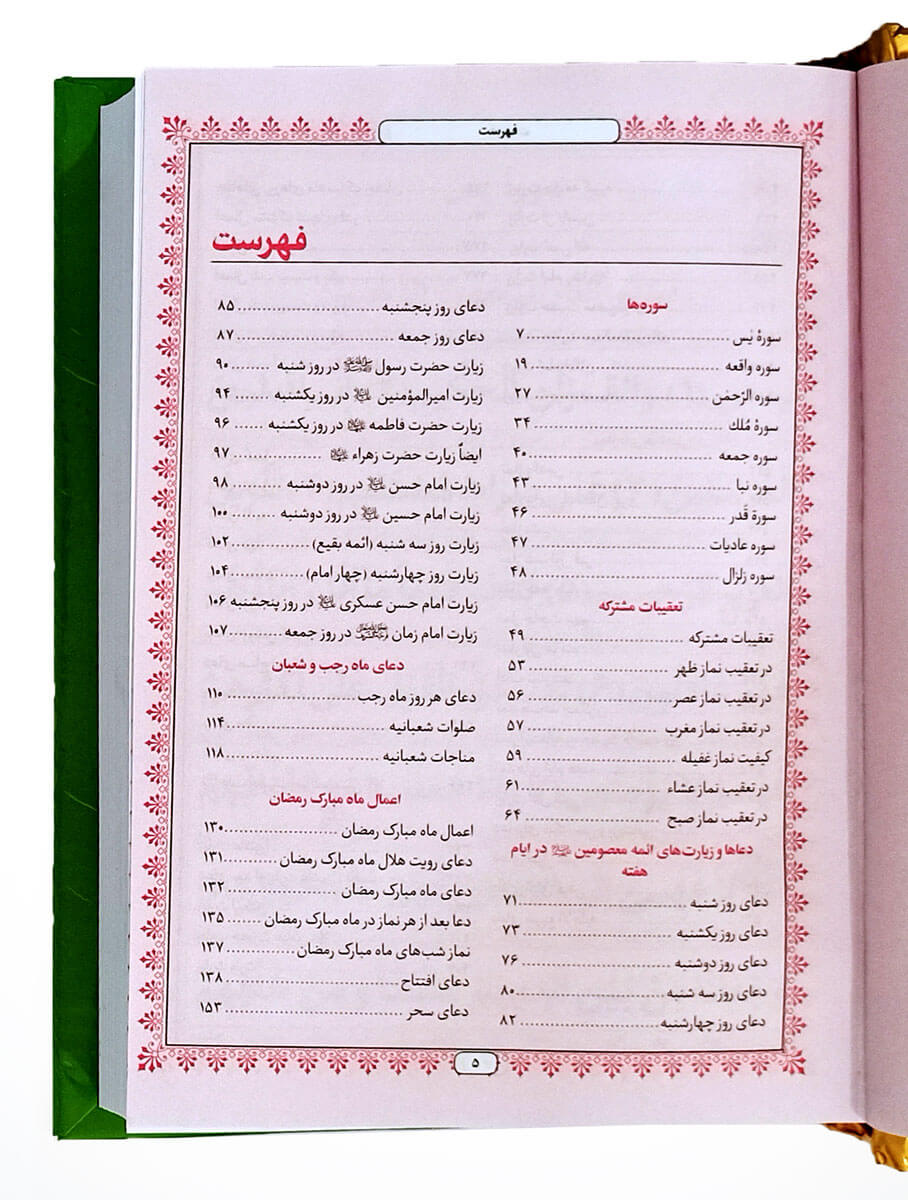 فهرست
فهرست
سوره‌ها
سورهٔ یٰس ........ ۷
سوره واقعه ........ ۱۹
سوره الرّحمٰن ........ ۲۷
سورهٔ مُلك ........ ۳۴
سوره جمعه ........ ۴۰
سوره نبا ........ ۴۳
سورة قَدر ........ ۴۶
سوره عادیات ........ ۴۷
سوره زلزال ........ ۴۸
تعقیبات مشترکه
تعقیبات مشترکه ........ ۴۹
در تعقیب نماز ظهر ........ ۵۳
در تعقیب نماز عصر ........ ۵۶
در تعقیب نماز مغرب ........ ۵۷
کیفیت نماز غفیله ........ ۵۹
در تعقیب نماز عشاء ........ ۶۱
در تعقیب نماز صبح ........ ۶۴
دعاها و زیارت‌های ائمه معصومین در ایام
هفته
دعای روز شنبه ........ ۷۱
دعای روز یکشنبه ........ ۷۳
دعای روز دوشنبه ........ ۷۶
دعای روز سه شنبه ........ ۸۰
دعای روز چهارشنبه ........ ۸۲
دعای روز پنجشنبه ........ ۸۵
دعای روز جمعه ........ ۸۷
زیارت حضرت رسول ﷺ در روز شنبه ........ ۹۰
زیارت امیرالمؤمنین در روز یکشنبه ........ ۹۴
زیارت حضرت فاطمه در روز یکشنبه ........ ۹۶
ایضاً زیارت حضرت زهراء ........ ۹۷
زیارت امام حسن در روز دوشنبه ........ ۹۸
زیارت امام حسین در روز دوشنبه ........ ۱۰۰
زیارت روز سه شنبه (ائمه بقیع) ........ ۱۰۲
زیارت روز چهارشنبه (چهار امام) ........ ۱۰۴
زیارت امام حسن عسکری در روز پنجشنبه ۱۰۶
زیارت امام زمان در روز جمعه ........ ۱۰۷
دعای ماه رجب و شعبان
دعای هر روز ماه رجب ........ ۱۱۰
صلوات شعبانیه ........ ۱۱۴
مناجات شعبانیه ........ ۱۱۸
اعمال ماه مبارک رمضان
اعمال ماه مبارک رمضان ........ ۱۳۰
دعای رویت هلال ماه مبارک رمضان ........ ۱۳۱
دعای ماه مبارک رمضان ........ ۱۳۲
دعا بعد از هر نماز در ماه مبارک رمضان ........ ۱۳۵
نماز شب‌های ماه مبارک رمضان ........ ۱۳۷
دعای افتتاح ........ ۱۳۸
دعای سحر ........ ۱۵۳
۵